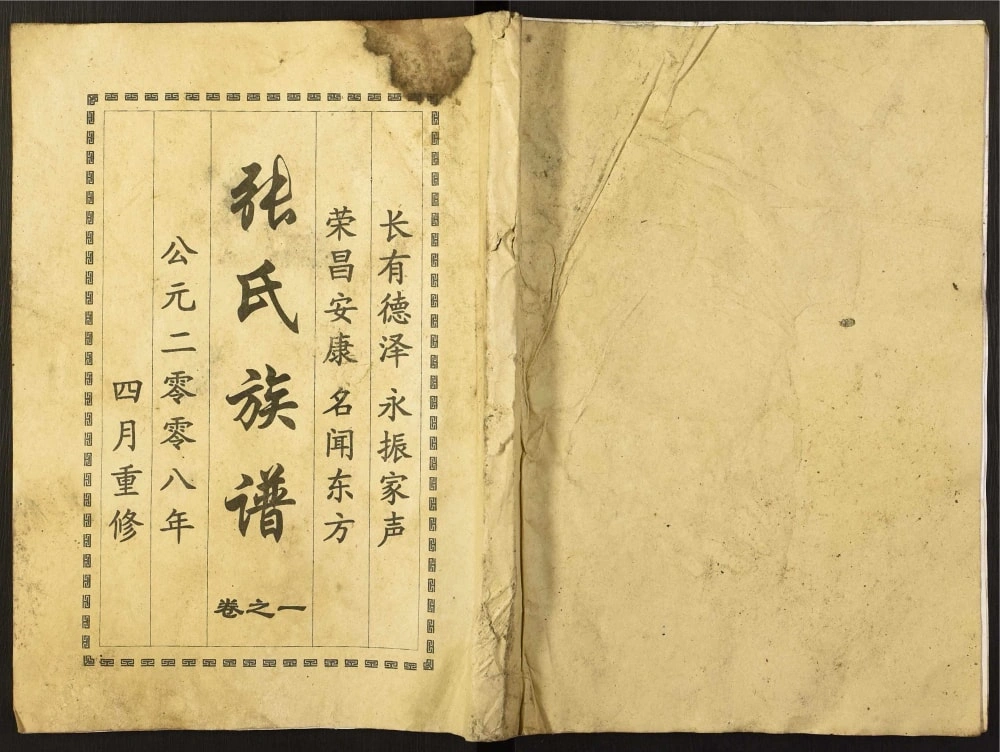 长有德泽 永振家声
荣昌安康 名闻东方
张氏族谱
卷之一
公元二零零八年
四月重修